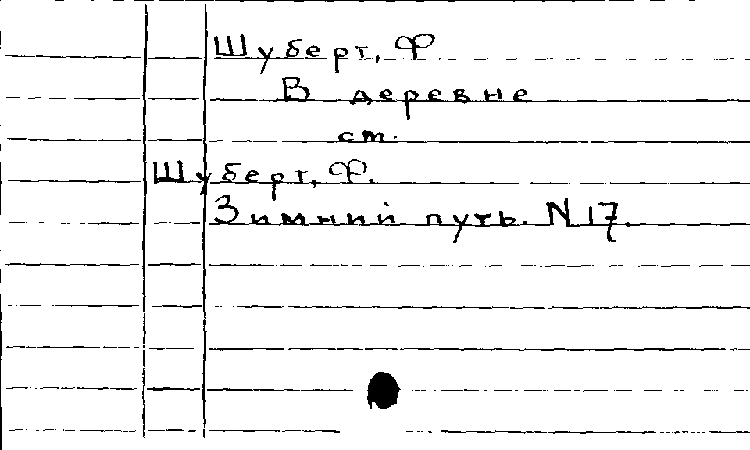 Шуберт, Ф.
В деревне
см.
Шуберт, Ф.
Зимний путь. N 17.